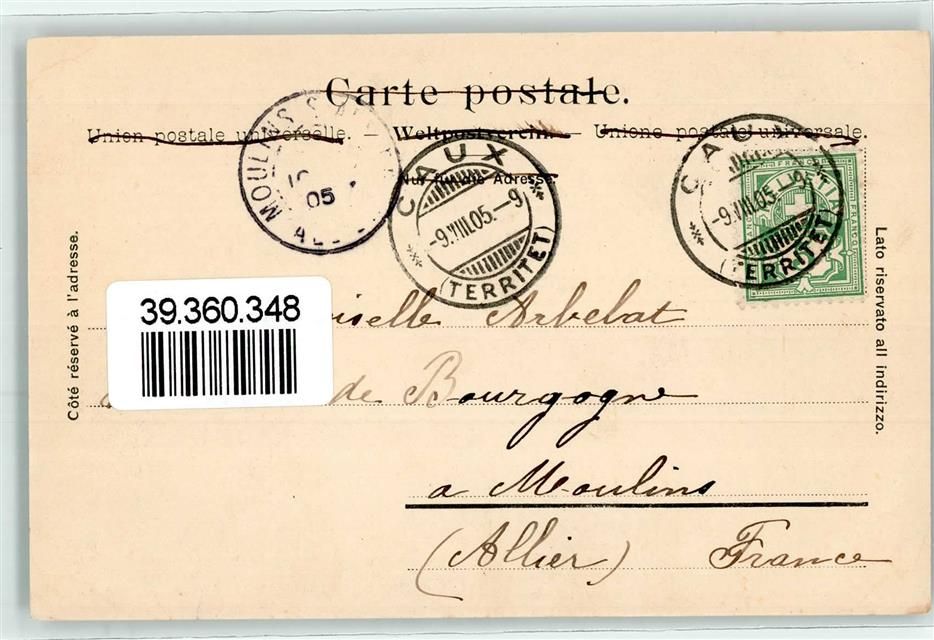 Carte postale.
Union postale universelle. — Weltpostverein. — Unione postale universale.
Nur für die Adresse.
MOULINS S
05
CAUX
-9.VIII.05.-9
(TERRITET)
CAUX
-9.VIII.05.-9
(TERRITET)
FRANCO
Côté réservé à l'adresse.
Lato riservato all indirizzo.
39.360.348
Arbelat
de Bourgogne
a Moulins
(Allier) France